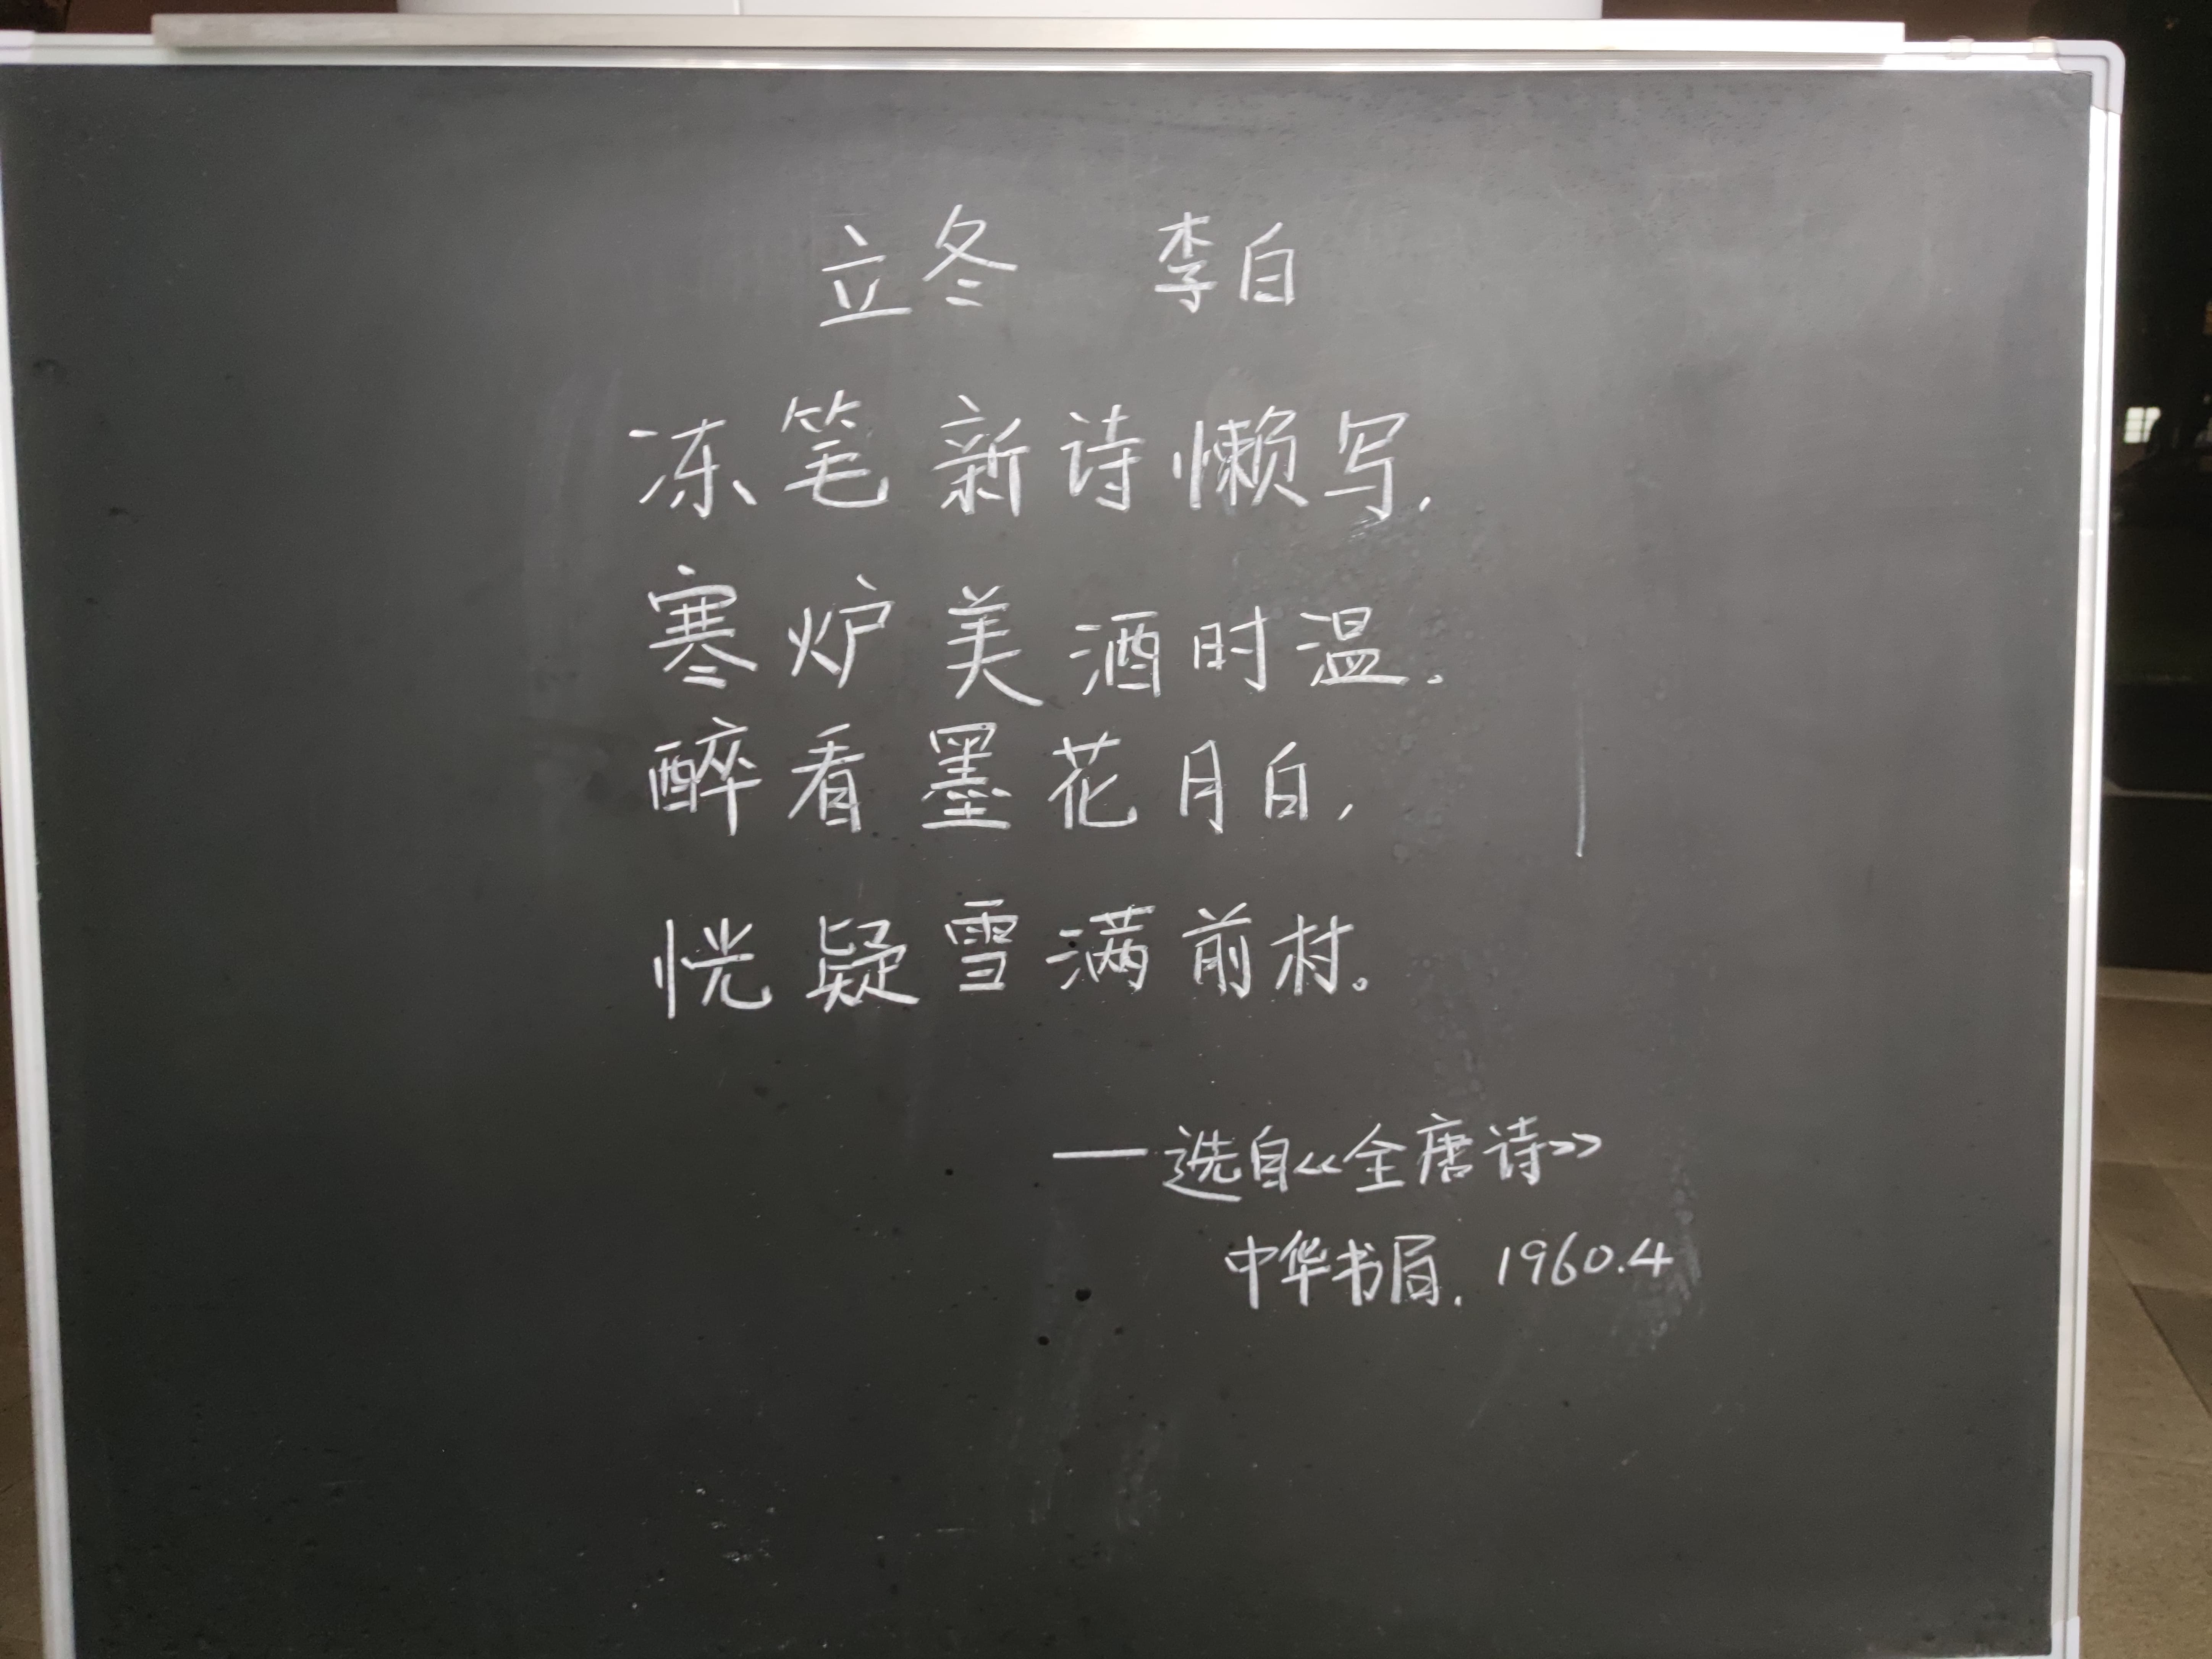 立冬 李白
冻笔新诗懒写,
寒炉美酒时温.
醉看墨花月白,
恍疑雪满前村。
——选自《全唐诗》
中华书局. 1960.4